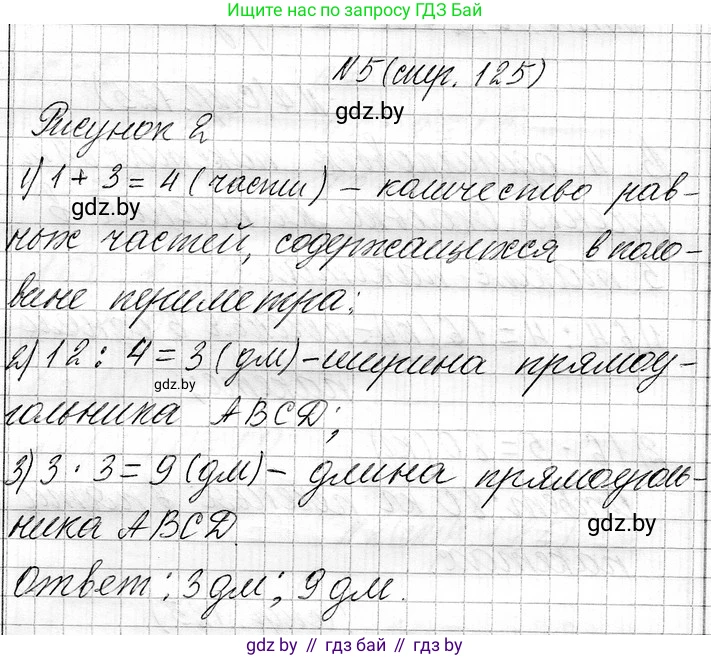 Ищите нас по запросу ГДЗ Бай
№5 (стр. 125)
gdz.by
Рисунок 2
1) 1 + 3 = 4 (части) – количество рав-
gdz.by
ных частей, содержащихся в поло-
вине периметра;
2) 12 : 4 = 3 (дм) – ширина прямоу-
gdz.by
гольника ABCD;
3) 3 · 3 = 9 (дм) – длина прямоуголь-
ника ABCD.
gdz.by
Ответ: 3 дм; 9 дм.
gdz.by // гдз бай // гдз.by